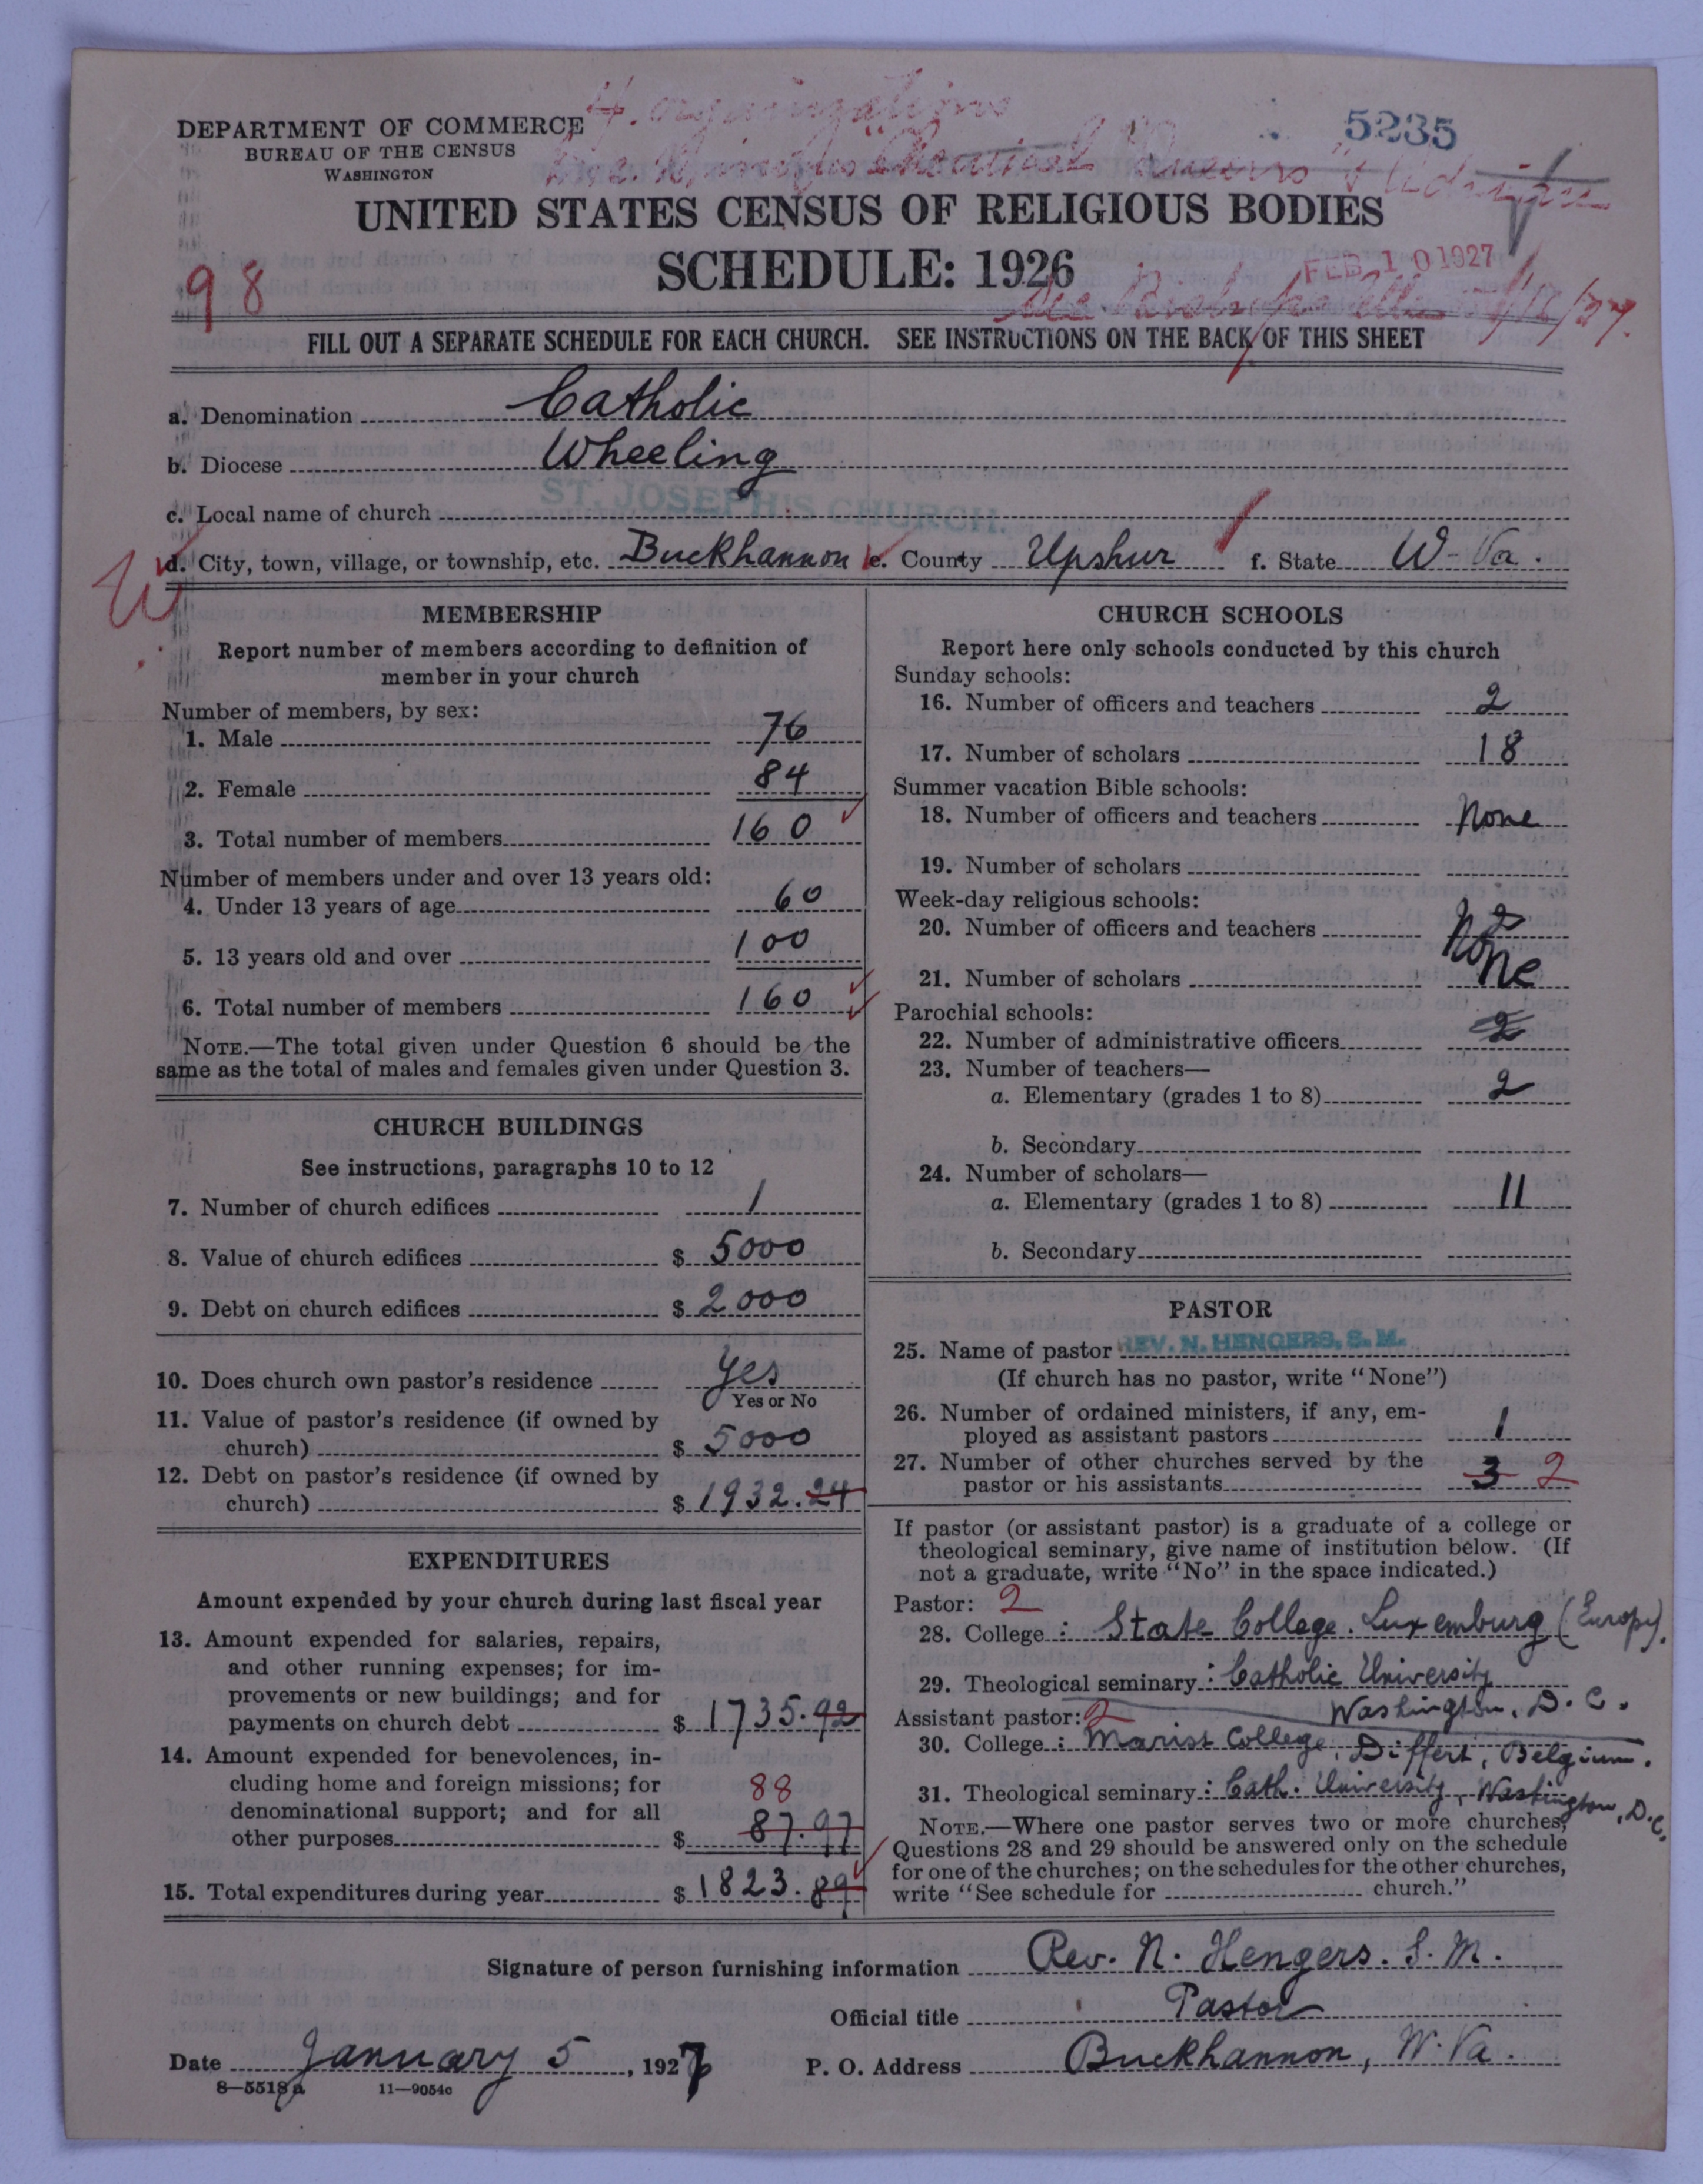 4 organizations
5235
DEPARTMENT OF COMMERCE
BUREAU OF THE CENSUS
WASHINGTON
UNITED STATES CENSUS OF RELIGIOUS BODIES
SCHEDULE: 1926
FEB 10 1927
98
FILL OUT A SEPARATE SCHEDULE FOR EACH CHURCH. SEE INSTRUCTIONS ON THE BACK OF THIS SHEET
a. Denomination Catholic
b. Diocese Wheeling
c. Local name of church ST. JOSEPH'S CHURCH.
d. City, town, village, or township, etc. Buckhannon e. County Upshur f. State W-Va.
MEMBERSHIP
Report number of members according to definition of
member in your church
Number of members, by sex:
1. Male 76
2. Female 84
3. Total number of members 160
Number of members under and over 13 years old:
4. Under 13 years of age 60
5. 13 years old and over 100
6. Total number of members 160
NOTE.—The total given under Question 6 should be the
same as the total of males and females given under Question 3.
CHURCH BUILDINGS
See instructions, paragraphs 10 to 12
7. Number of church edifices 1
8. Value of church edifices $ 5000
9. Debt on church edifices $ 2000
10. Does church own pastor's residence Yes
Yes or No
11. Value of pastor's residence (if owned by
church) $ 5000
12. Debt on pastor's residence (if owned by
church) $ 1932.24
EXPENDITURES
Amount expended by your church during last fiscal year
13. Amount expended for salaries, repairs,
and other running expenses; for im-
provements or new buildings; and for
payments on church debt $ 1735.92
14. Amount expended for benevolences, in-
cluding home and foreign missions; for 88
denominational support; and for all
other purposes $ 87.97
15. Total expenditures during year $ 1823.89
CHURCH SCHOOLS
Report here only schools conducted by this church
Sunday schools:
16. Number of officers and teachers 2
17. Number of scholars 18
Summer vacation Bible schools:
18. Number of officers and teachers None
19. Number of scholars
Week-day religious schools:
20. Number of officers and teachers 2
None
21. Number of scholars
Parochial schools:
22. Number of administrative officers 2
23. Number of teachers—
a. Elementary (grades 1 to 8) 2
b. Secondary
24. Number of scholars—
a. Elementary (grades 1 to 8) 11
b. Secondary
PASTOR
25. Name of pastor REV. N. HENGERS, S. M.
(If church has no pastor, write "None")
26. Number of ordained ministers, if any, em-
ployed as assistant pastors 1
27. Number of other churches served by the
pastor or his assistants 3 2
If pastor (or assistant pastor) is a graduate of a college or
theological seminary, give name of institution below. (If
not a graduate, write "No" in the space indicated.)
Pastor: 2
28. College : State College. Luxemburg (Europ).
29. Theological seminary : Catholic University
Washington, D. C.
Assistant pastor: 2
30. College : Marist College, Differt, Belgium.
31. Theological seminary : Cath. University, Washington, D.C.
NOTE.—Where one pastor serves two or more churches,
Questions 28 and 29 should be answered only on the schedule
for one of the churches; on the schedules for the other churches,
write "See schedule for church."
Signature of person furnishing information Rev. N. Hengers. S. M.
Official title Pastor
Date January 5, 1927 P. O. Address Buckhannon, W. Va.
8—5518a 11—9054c